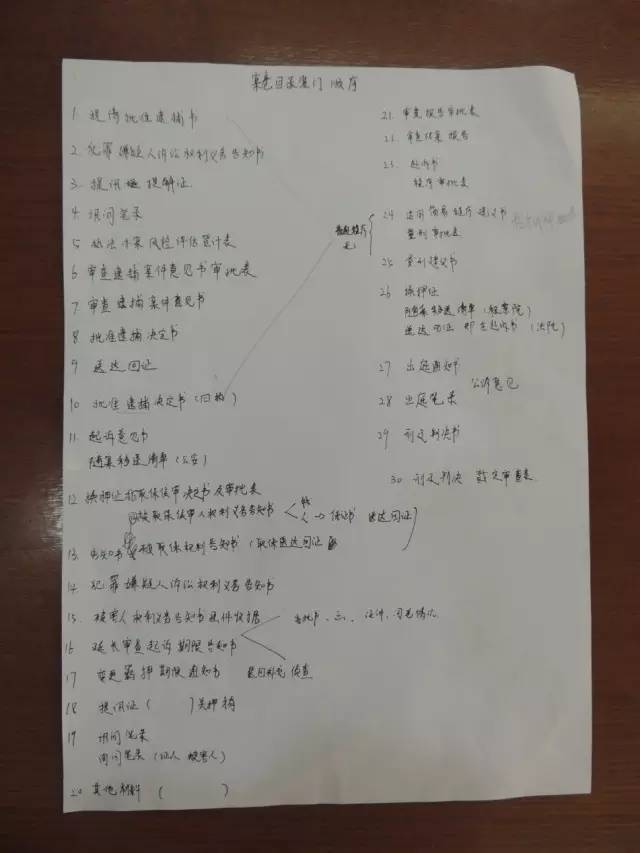 案卷目录装订顺序
1. 提请批准逮捕书
2. 犯罪嫌疑人诉讼权利义务告知书
3. 提讯 提解证
4 讯问笔录
5 执法办案风险评估暨计表
6 审查逮捕案件意见书审批表
7 审查逮捕案件意见书
8 批准逮捕决定书
9 送达回证
10 批准逮捕决定书(归档)
11. 起诉意见书
随案移送清单(公安)
12 换押证 取保候审决定书及审批表
被取保候审人权利义务告知书
钱
人 → 保证书 送达回证
13. 告知书 被取保权利告知书(取保送达回证
14. 犯罪嫌疑人诉讼权利义务告知书
15. 被害人权利义务告知书 邮件收据
16 延长审查起诉期限告知书
17 变更羁押期限通知书 退回补充侦查
18 提讯证( )关押待
19 讯问笔录
询问笔录(证人 被害人)
20 其他材料( )
21. 审查报告审批表
22. 审查结案报告
23. 起诉书
程序审批表
普通程序
无:
24 适用简易程序建议书
量刑审批表
25 量刑建议书
26 换押证
随案移送清单(检察院)
送达回证 附在起诉书(法院)
27 出庭通知书
公诉意见
28 出庭笔录
29 刑事判决书
30 刑事判决 裁定审查表